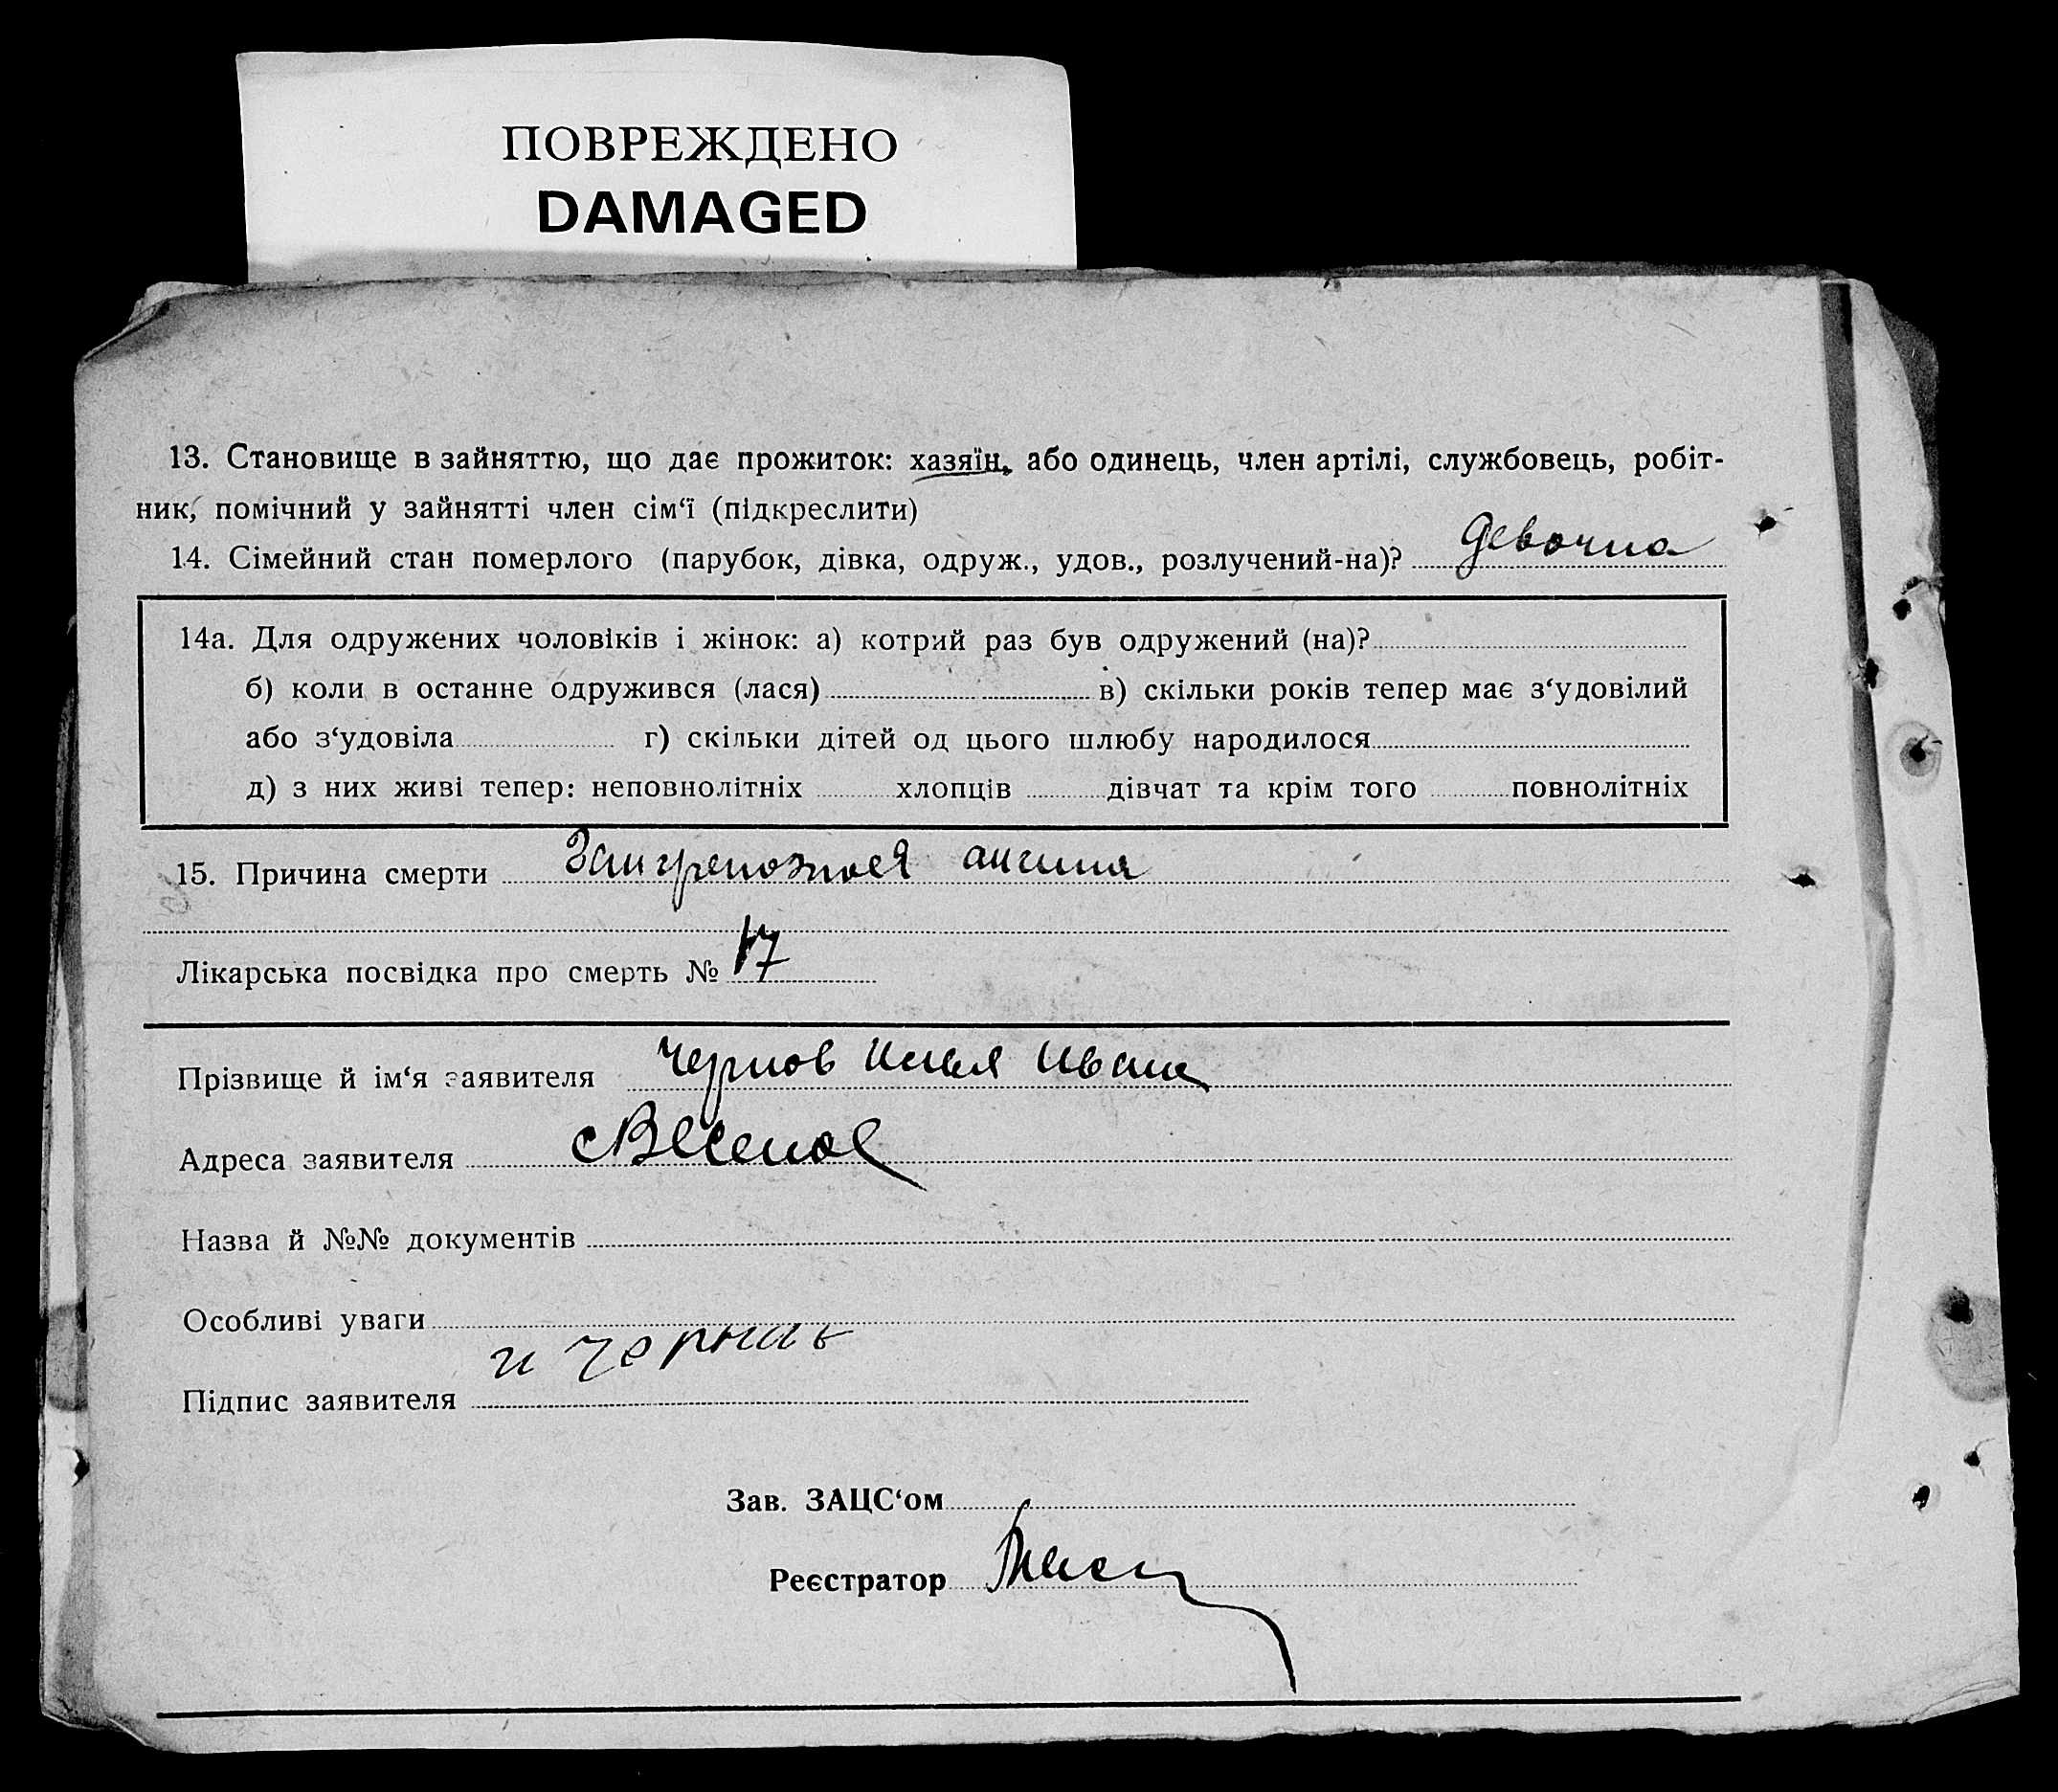 ПОВРЕЖДЕНО
DAMAGED
13. Становище в зайняттю, що дає прожиток: хазяїн, або одинець, член артілі, службовець, робіт-
ник, помічний у зайнятті член сім‘ї (підкреслити)
14. Сімейний стан померлого (парубок, дівка, одруж., удов., розлучений-на)? девочка
14а. Для одружених чоловіків і жінок: а) котрий раз був одружений (на)?
б) коли в останне одружився (лася) в) скільки років тепер має з‘удовілий
або з‘удовіла г) скільки дітей од цього шлюбу народилося
д) з них живі тепер: неповнолітніх хлопців дівчат та крім того повнолітніх
15. Причина смерти ангина
Лікарська посвідка про смерть № 17
Прізвище й ім‘я заявителя Чернов Илья Иван
Адреса заявителя с Веселое
Назва й №№ документів
Особливі уваги
и Чернов
Підпис заявителя
Зав. ЗАЦС‘ом
Реєстратор